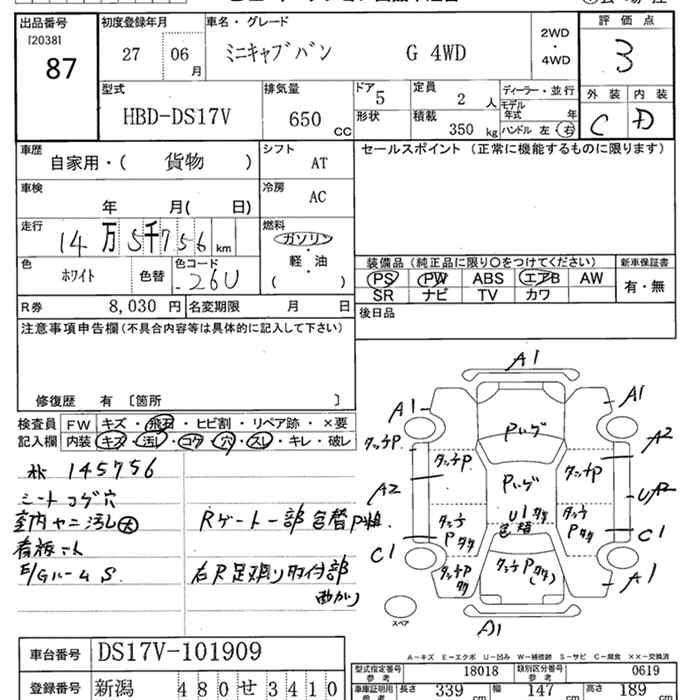 出品番号 初度登録年月 車名・グレード 評価点
[2038]
87
27 06 月
ミニキャブバン G 4WD
2WD・4WD
3
型式 HBD-DS17V
排気量 650 CC
ドア 5
形状
定員 2 人
積載 350 kg
ディーラー・並行
モデル年式 年
ハンドル 左 右
外装 内装
C D
車歴 自家用・( 貨物 )
シフト AT
セールスポイント (正常に機能するものに限ります)
車検 年 月( 日)
冷房 AC
走行 14万5千756 km
燃料 ガソリン・軽・油
( )
色 ホワイト 色替
色コード 26U
装備品 (純正品に限り○をつけてください) 新車保証書
PS PW ABS エアB AW
SR ナビ TV カワ
有・無
R券 8,030 円 名変期限 月 日
後日品
注意事項申告欄 (不具合内容等は具体的に記入して下さい)
修復歴 有 〔箇所 〕
検査員 FW キズ・飛石・ヒビ割・リペア跡・×要
記入欄 内装 キズ・汚レ・コゲ・穴・スレ・キレ・破レ
145756
シートコゲ穴
室内ヤニ汚レ大
E/Gルーム S
Rゲート一部色替P粗.
右R足廻り取付部
曲がり
A1
A1 A1
タッチP. Pハゲ A2
A2 タッチP Pハゲ タッチP
U1
色褪
C1 C1
A1
A1
スペア
A-キズ E-エクボ U-凹み W-補修跡 S-サビ C-腐食 ××-交換済
車台番号 DS17V-101909
登録番号 新潟 480 せ 3410
型式指定番号 参考 18018 類別区分番号 参考 0619
車庫証明用 参考 長さ 339 cm 幅 147 cm 高さ 189 cm